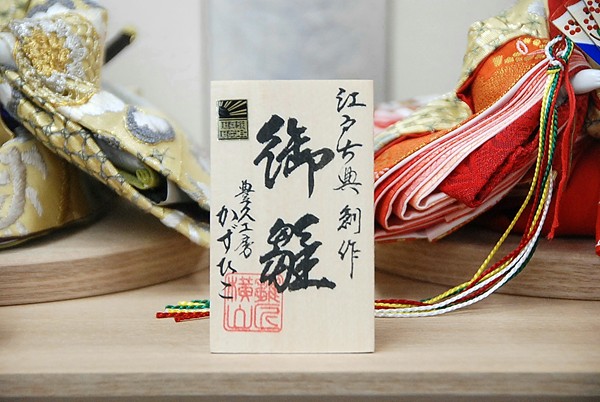 江戸古典創作
御雛
豊久工房
かずひこ
横山